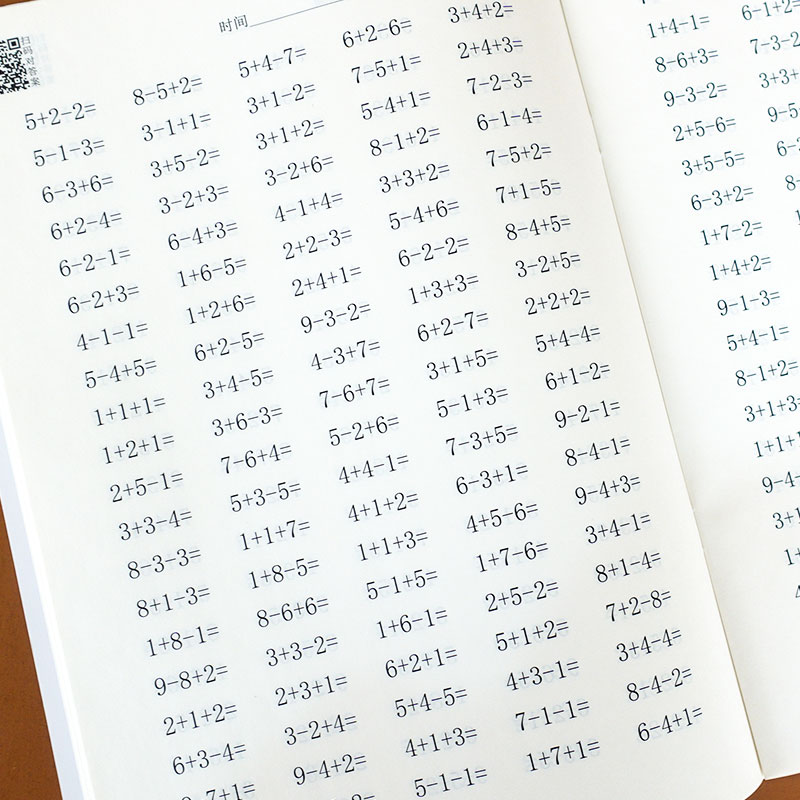 扫码对答案
时间
5+2-2= 8-5+2= 5+4-7= 6+2-6= 3+4+2=
5-1-3= 3-1+1= 3+1-2= 7-5+1= 2+4+3=
6-3+6= 3+5-2= 3+1+2= 5-4+1= 7-2-3=
6+2-4= 3-2+3= 3-2+6= 8-1+2= 6-1-4=
6-2-1= 6-4+3= 4-1+4= 3+3+2= 7-5+2=
6-2+3= 1+6-5= 2+2-3= 5-4+6= 7+1-5=
4-1-1= 1+2+6= 2+4+1= 6-2-2= 8-4+5=
5-4+5= 6+2-5= 9-3-2= 1+3+3= 3-2+5=
1+1+1= 3+4-5= 4-3+7= 6+2-7= 2+2+2=
1+2+1= 3+6-3= 7-6+7= 3+1+5= 5+4-4=
2+5-1= 7-6+4= 5-2+6= 5-1+3= 6+1-2=
3+3-4= 5+3-5= 4+4-1= 7-3+5= 9-2-1=
8-3-3= 1+1+7= 4+1+2= 6-3+1= 8-4-1=
8+1-3= 1+8-5= 1+1+3= 4+5-6= 9-4+3=
1+8-1= 8-6+6= 5-1+5= 1+7-6= 3+4-1=
9-8+2= 3+3-2= 1+6-1= 2+5-2= 8+1-4=
2+1+2= 2+3+1= 6+2+1= 5+1+2= 7+2-8=
6+3-4= 3-2+4= 5+4-5= 4+3-1= 3+4-4=
9-4+2= 4+1+3= 7-1-1= 8-4-2=
5-1-1= 1+7+1= 6-4+1=
1+4-1= 6-1+2=
8-6+3= 7-3-2
9-3-2= 3+3+
2+5-6= 9-5
3+5-5= 6-
6-3+2= 8-
1+7-2=
1+4+2=
9-1-3=
5+4-1=
8-1+2=
3+1+3
1+1+
9-4-
3+1
1+